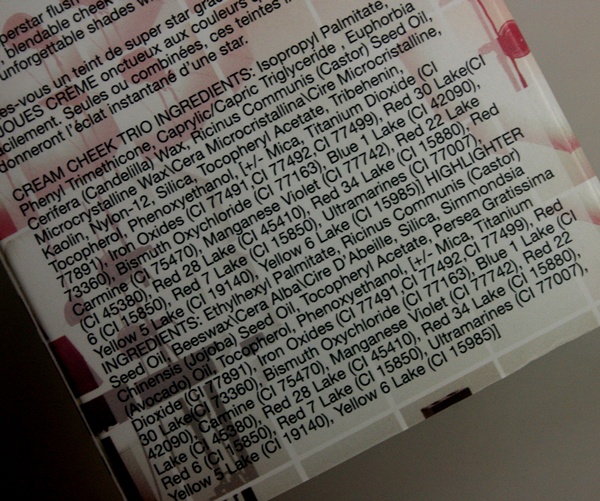 perstar flus
, blendable cheek
unforgettable shades w
es-vous un teint de super star gra
JOUES CRÈME onctueux aux couleurs
cilement. Seules ou combinées, ces teintes
donneront l'éclat instantané d'une star.
CREAM CHEEK TRIO INGREDIENTS: Isopropyl Palmitate,
Phenyl Trimethicone, Caprylic/Capric Triglyceride, Euphorbia
Cerifera (Candelilla) Wax, Ricinus Communis (Castor) Seed Oil,
Microcrystalline Wax\Cera Microcristallina\Cire Microcristalline,
Kaolin, Nylon-12, Silica, Tocopheryl Acetate, Tribehenin,
Tocopherol, Phenoxyethanol, [+/- Mica, Titanium Dioxide (CI
77891), Iron Oxides (CI 77491 CI 77492 CI 77499), Red 30 Lake(CI
73360), Bismuth Oxychloride (CI 77163), Blue 1 Lake (CI 42090),
Carmine (CI 75470), Manganese Violet (CI 77742), Red 22 Lake
(CI 45380), Red 28 Lake (CI 45410), Red 34 Lake (CI 15880), Red
6 (CI 15850), Red 7 Lake (CI 15850), Ultramarines (CI 77007),
Yellow 5 Lake (CI 19140), Yellow 6 Lake (CI 15985)] HIGHLIGHTER
INGREDIENTS: Ethylhexyl Palmitate, Ricinus Communis (Castor)
Seed Oil, Beeswax\Cera Alba\Cire D'Abeille, Silica, Simmondsia
Chinensis (Jojoba) Seed Oil, Tocopheryl Acetate, Persea Gratissima
(Avocado) Oil, Tocopherol, Phenoxyethanol, [+/- Mica, Titanium
Dioxide (CI 77891), Iron Oxides (CI 77491 CI 77492 CI 77499), Red
30 Lake(CI 73360), Bismuth Oxychloride (CI 77163), Blue 1 Lake (CI
42090), Carmine (CI 75470), Manganese Violet (CI 77742), Red 22
Lake (CI 45380), Red 28 Lake (CI 45410), Red 34 Lake (CI 15880),
Red 6 (CI 15850), Red 7 Lake (CI 15850), Ultramarines (CI 77007),
Yellow 5 Lake (CI 19140), Yellow 6 Lake (CI 15985)]